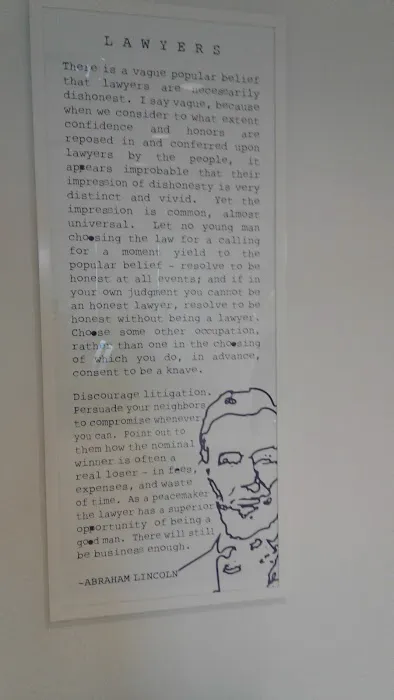 LAWYERS
There is a vague popular belief
that lawyers are necessarily
dishonest. I say vague, because
when we consider to what extent
confidence and honors are
reposed in and conferred upon
lawyers by the people, it
appears improbable that their
impression of dishonesty is very
distinct and vivid. Yet the
impression is common, almost
universal. Let no young man
choosing the law for a calling
for a moment yield to the
popular belief - resolve to be
honest at all events; and if in
your own judgment you cannot be
an honest lawyer, resolve to be
honest without being a lawyer.
Choose some other occupation,
rather than one in the choosing
of which you do, in advance,
consent to be a knave.
Discourage litigation.
Persuade your neighbors
to compromise whenever
you can. Point out to
them how the nominal
winner is often a
real loser - in fees,
expenses, and waste
of time. As a peacemaker
the lawyer has a superior
opportunity of being a
good man. There will still
be business enough.
~ABRAHAM LINCOLN